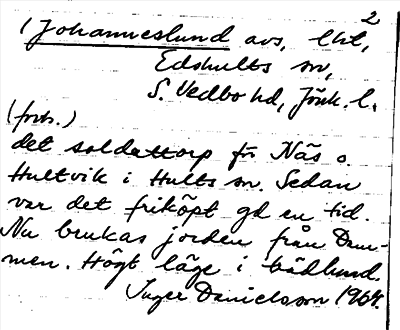 2
(Johanneslund avs, lht,
Edshults sn,
S. Vedbo hd, Jönk. l.
(forts.)
det soldattorp fr Näs o.
Hultvik i Hults sn. Sedan
var det friköpt gd en tid.
Nu brukas jorden från Dam-
men. Högt läge i bådlund.
Inger Danielsson 1964.